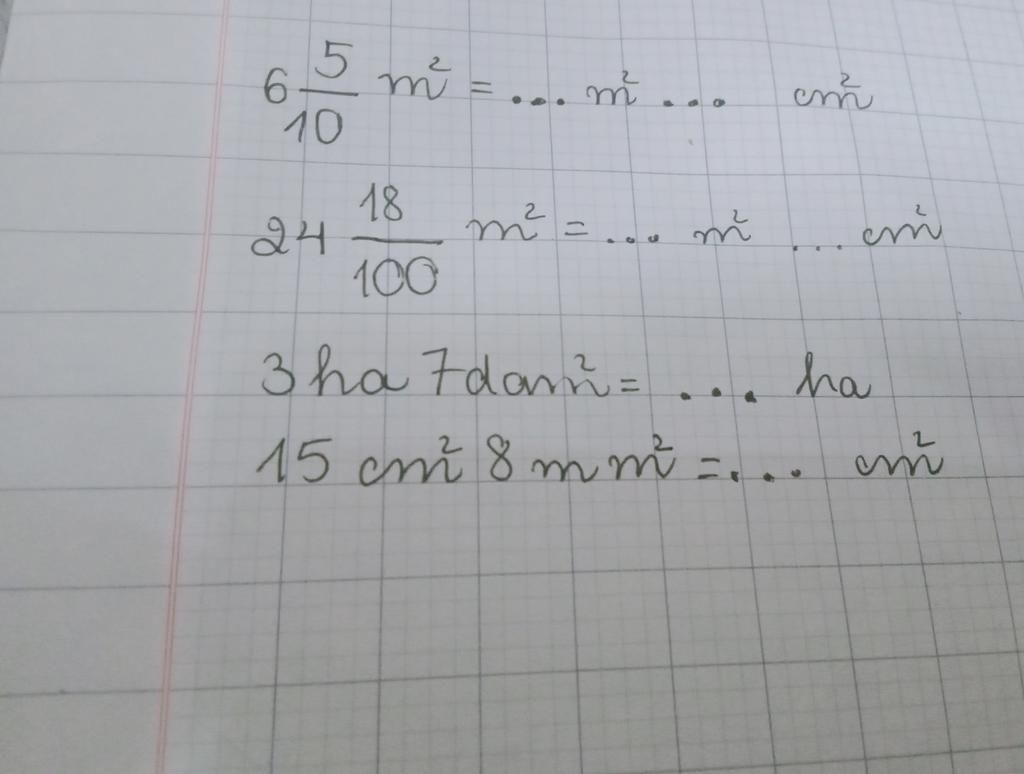 6 5/10 m² = ... m² ... cm²
24 18/100 m² = ... m² ... cm²
3 ha 7 dam² = ... ha
15 cm² 8 mm² = ... cm²